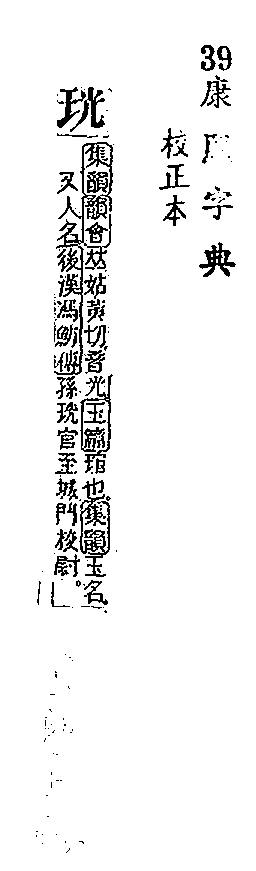 39康熙字典
校正本
珖
集韻韻會𠀤姑黃切音光玉篇琯也集韻玉名
又人名後漢馮魴傳孫珖官至城門校尉。